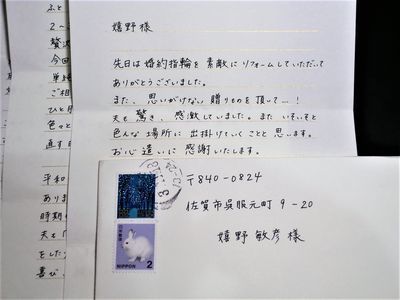 嬉野様
先日は婚約指輪を素敵にリフォームしていただいて
ありがとうございました。
また、思いがけない贈りものを頂して…!
夫も驚き、感激していました。また いそいそと
色んな場所に出掛けていくことと思います。
お心遣いに感謝いたします。
〒840-0824
佐賀市呉服元町 9-20
嬉野 敏彦様
日本郵便
NIPPON 2
ふと
2〜
贅沢
今回
単純
ご相
ひと月
色々と
直す
平和
ありま
時期
夫と
をした
喜び